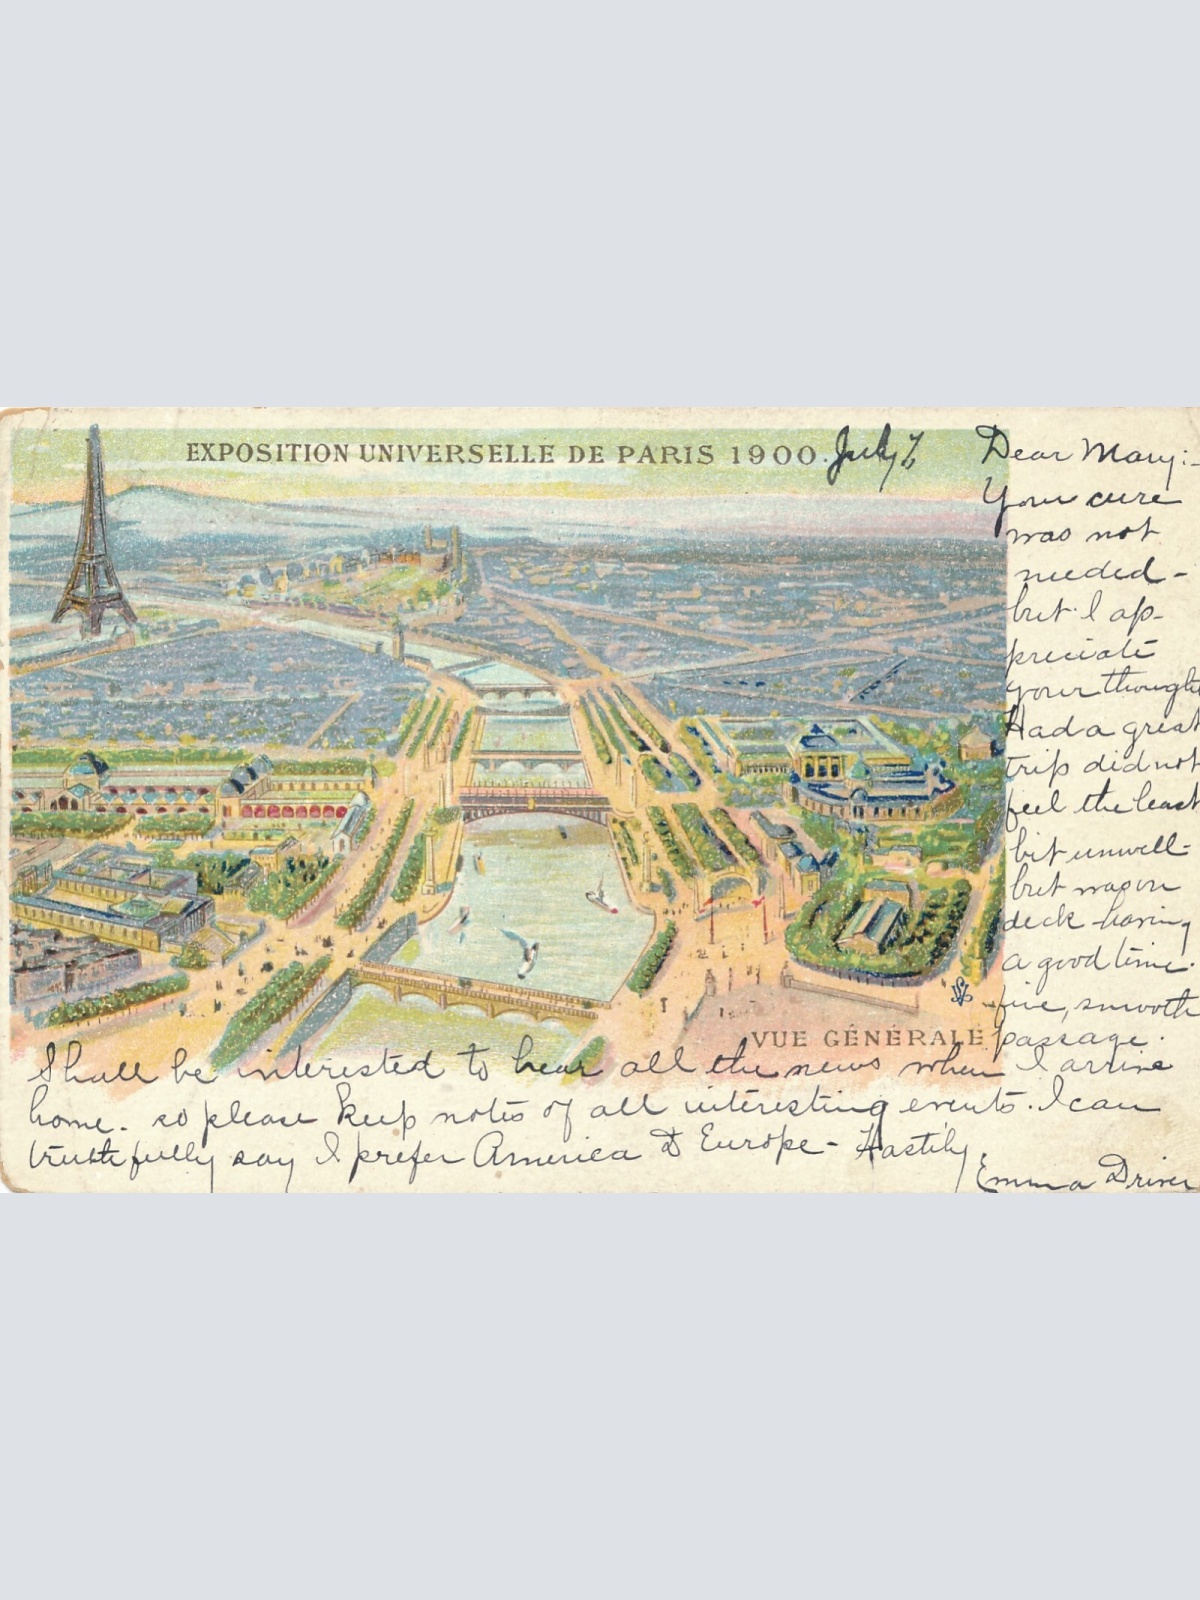 EXPOSITION UNIVERSELLE DE PARIS 1900.
July 7
Dear Mary:-
Your cure
was not
needed-
but I ap-
preciate
your thought
Had a great
trip did not
feel the least
bit unwell-
but was on
deck having
a good time.
fine, smooth
passage.
VUE GÉNÉRALE
Shall be interested to hear all the news when I arrive
home. so please keep notes of all interesting events. I can
truthfully say I prefer America to Europe- Hastily,
Emma Driver